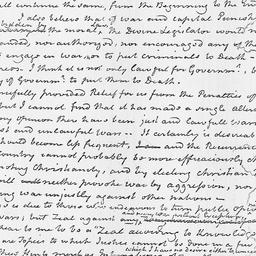 ll continue the same, from the Beginning to the En
I also believe that if war and capital Punish
the moral, the Divine Legislator would n
anded, nor authorized, nor encouraged any of th
engage in war, or to put criminals to Death.
I think it is not only lawful for Government,
of Government: to put them to Death.
rcifully provided Relief for us from the Penalties of
but I cannot find that it has made a single allus
my opinion there have been just and lawful wars
st and unlawful wars — It certainly is desirab
should become less frequent, and the Recurrence
Country cannot probably be more efficaciously
moting Christianity, and by electing christian
will neither provoke war by aggression, nor
ng war unjustly against other nations —
is due to those who endeavour to turn public opin
wars; but Zeal against any
pear to me to be a "Zeal according to Knowledge
are Topics to which Justice cannot be done in a few
which I have no desire either to